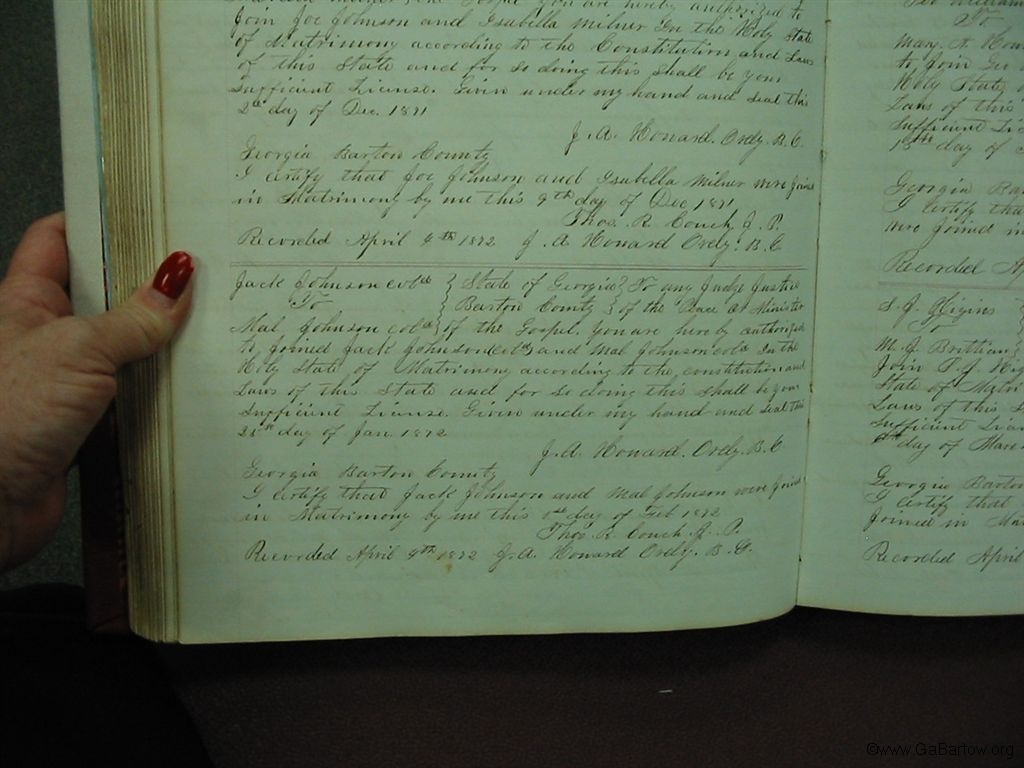 you are hereby authorized to
Join Joe Johnson and Isabella Milner In the Holy State
of Matrimony according to the Constitution and Laws
of this State and for so doing this shall be your
Sufficient License. Given under my hand and seal this
2nd day of Dec. 1871
J. A. Howard. Ordy. B. C.
Georgia Barton County
I certify that Joe Johnson and Isabella Milner were joined
in Matrimony by me this 9th day of Dec 1871
Thos. R. Couch J. P.
Recorded April 4th 1872 J. A Howard Ordy. B. C
Jack Johnson cold } State of Georgia } To any Judge Justice
To } Barton County } of the Peace or Minister
Mal Johnson cold } of the Gospel. You are hereby authorized
to Joined Jack Johnson cold and Mal Johnson cold In the
Holy State of Matrimony according to the constitution and
Laws of this State and for so doing this shall be your
Sufficient License. Given under my hand and seal this
day of Jan. 1872
J. A. Howard. Ordy. B. C
Georgia Barton County
I certify that Jack Johnson and Mal Johnson were joined
in Matrimony by me this day of Feb 1872
Thos. R. Couch. J. P.
Recorded April 9th 1872 J. A. Howard Ordy. B. C.
To
Mary. A.
to Join Geo
Holy State of
Laws of this
Sufficient
day of
Georgia
I certify that
were Joined in
Recorded
S. J. Higins
To
M. J. Brittian
Join S. J.
State of
Laws of this
Sufficient
day of
Georgia Barton
I certify that
Joined in
Recorded April
©www.GaBartow.org